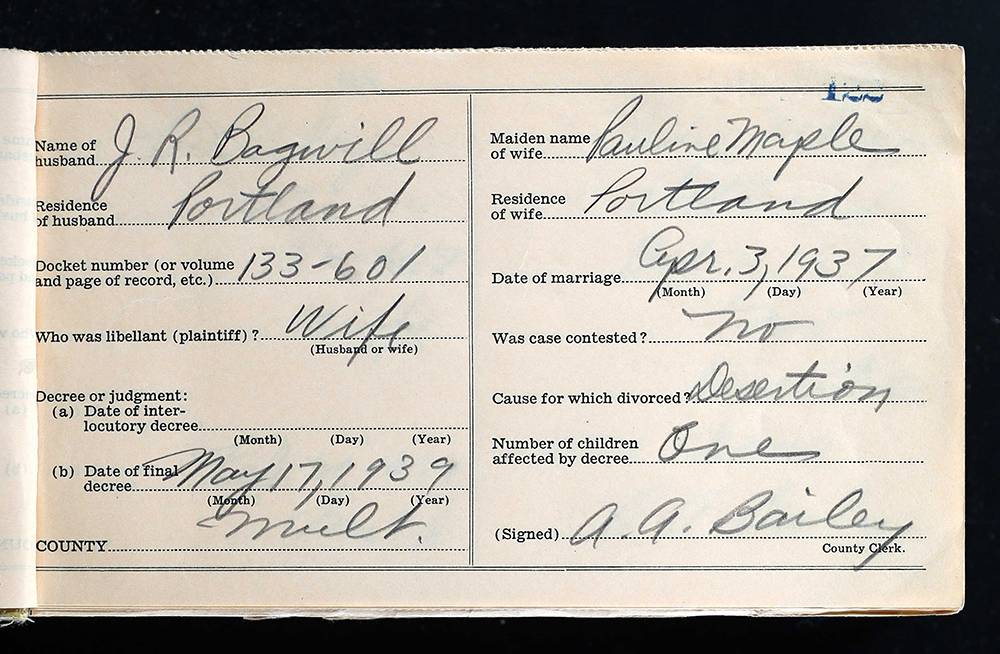 Name of husband J. R. Bagwill
Residence of husband Portland
Docket number (or volume and page of record, etc.) 133-601
Who was libellant (plaintiff)? Wife
(Husband or wife)
Decree or judgment:
(a) Date of inter-
locutory decree
(Month) (Day) (Year)
(b) Date of final decree May 17, 1939
(Month) (Day) (Year)
COUNTY Mult.
Maiden name of wife Pauline Maple
Residence of wife Portland
Date of marriage Apr. 3, 1937
(Month) (Day) (Year)
Was case contested? No
Cause for which divorced? Desertion
Number of children affected by decree One
(Signed) A. A. Bailey
County Clerk.